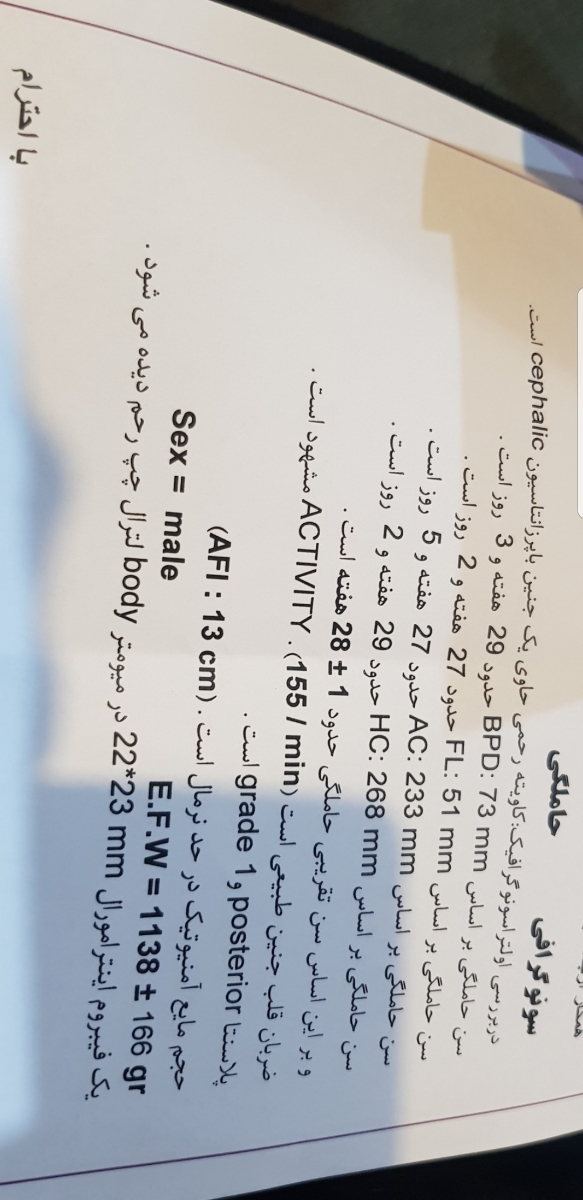 سونوگرافی حاملگی
دربررسی اولتراسونوگرافیک:کاویته رحمی حاوی یک جنین باپرزانتاسیون cephalic است.
سن حاملگی بر اساس BPD: 73 mm حدود 29 هفته و 3 روز است .
سن حاملگی بر اساس FL: 51 mm حدود 27 هفته و 2 روز است .
سن حاملگی بر اساس AC: 233 mm حدود 27 هفته و 5 روز است .
سن حاملگی بر اساس HC: 268 mm حدود 29 هفته و 2 روز است .
و بر این اساس سن تقریبی حاملگی حدود 1 ± 28 هفته است .
ضربان قلب جنین طبیعی است (155 / min) . ACTIVITY مشهود است .
پلاسنتا posterior و grade 1 است .
حجم مایع آمنیوتیک در حد نرمال است . (AFI : 13 cm)
E.F.W = 1138 ± 166 gr Sex = male
یک فیبروم اینترامورال 22*23 mm در میومتر body لترال چپ رحم دیده می شود .
با احترام